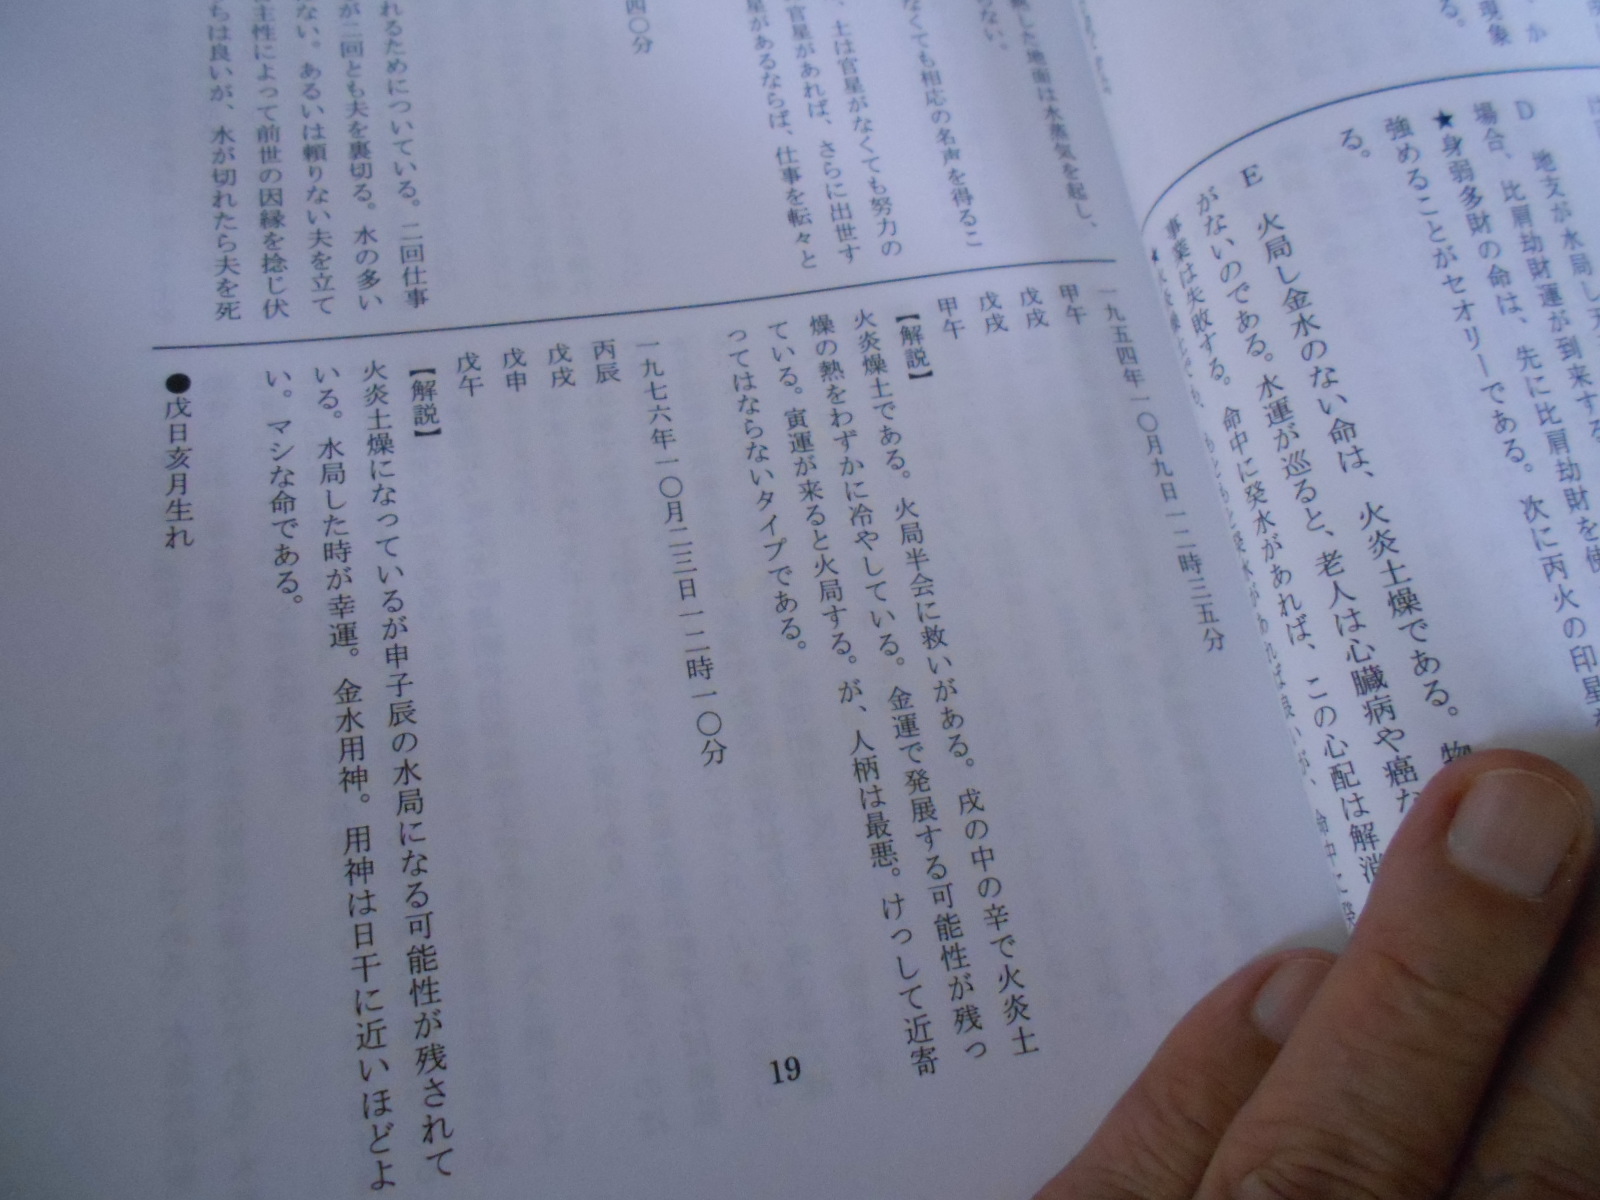 D　地支が水局し天
場合、比肩劫財運が到来する
★身弱多財の命は、先に比肩劫財を使
強めることがセオリーである。次に丙火の印星
る。
E　火局し金水のない命は、火炎土燥である。物
がないのである。水運が巡ると、老人は心臓病や癌な
事業は失敗する。命中に癸水があれば、この心配は解消
燥した地面は水蒸気を起し、
らない。
なくても相応の名声を得るこ
、土は官星がなくても努力の
官星があれば、さらに出世す
星があるならば、仕事を転々と
四〇分
れるためについている。二回仕事
が二回とも夫を裏切る。水の多い
ない。あるいは頼りない夫を立て
主性によって前世の因縁を捻じ伏
ちは良いが、水が切れたら夫を死
一九五四年一〇月九日一二時三五分
甲午
戊戌
戊戌
甲午
【解説】
火炎燥土である。火局半会に救いがある。戌の中の辛で火炎土
燥の熱をわずかに冷やしている。金運で発展する可能性が残っ
ている。寅運が来ると火局する。が、人柄は最悪。けっして近寄
ってはならないタイプである。
一九七六年一〇月二三日一二時一〇分
丙辰
戊戌
戊申
戊午
【解説】
火炎土燥になっているが申子辰の水局になる可能性が残されて
いる。水局した時が幸運。金水用神。用神は日干に近いほどよ
い。マシな命である。
●戊日亥月生れ
19